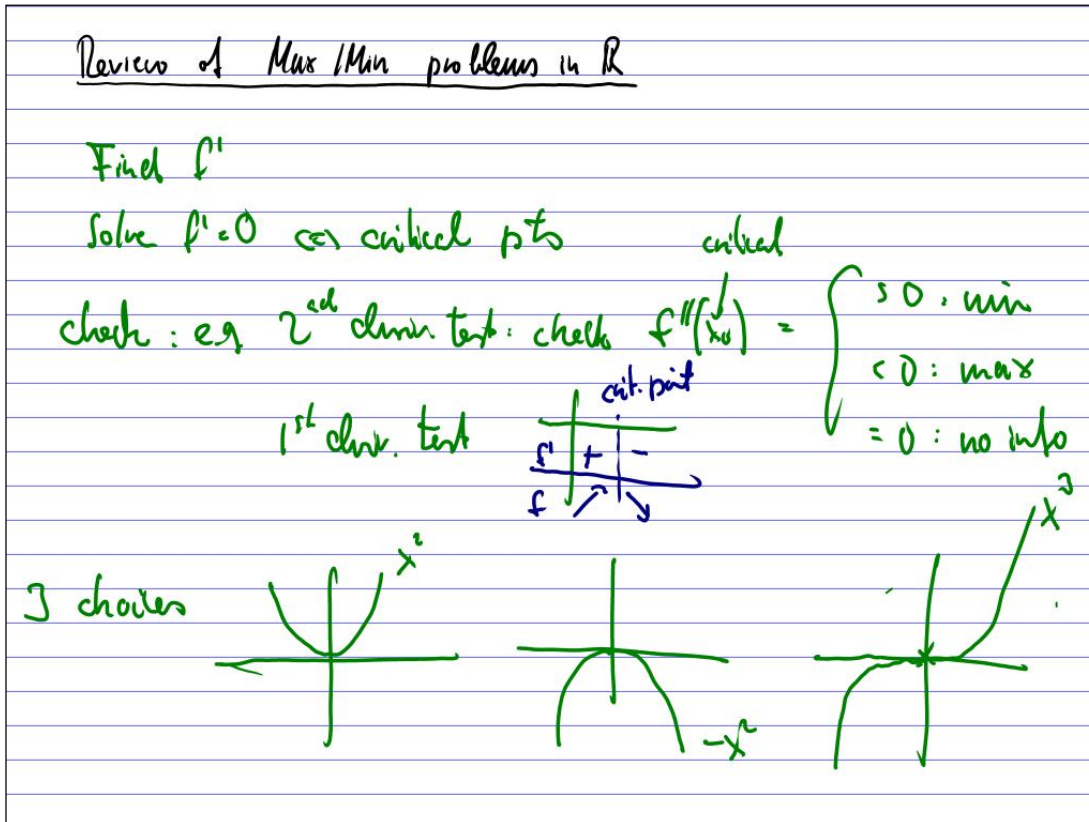 Review of Max/Min problems in ℝ
Find f'
Solve f'=0 ⇔ critical pts
critical
check : eg 2nd deriv. test : check f''(x₀) = { >0 : min
<0 : max
=0 : no info
1st deriv. test
crit. point
f' + -
f ↗ ↘
3 choices
x²
-x²
x³